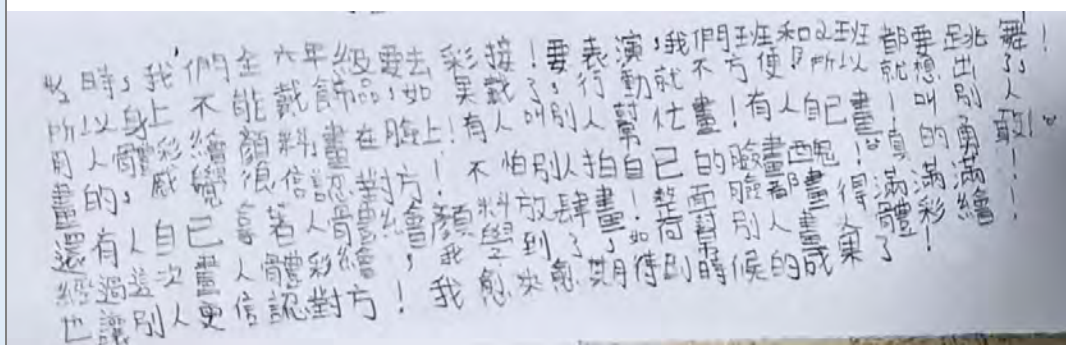 當時，我們全六年級要去彩接！要表演，我們班和2班都要跳舞！
所以身上不能戴飾品，如果戴了，行動就不方便！所以就想出了，
用人體彩繪顏料畫在臉上！有人叫別人幫忙畫！有人自己畫！叫別人
畫的，感覺很信認對方！不怕別人拍自己的臉畫醜！真的勇敢！
還有人自己拿著人體彩繪顏料放肆畫！整面臉都畫得滿滿滿！
經過這次畫人體彩繪，我學到了，如何幫別人畫人體彩繪！
也讓別人更信認對方！我愈來愈期待到時候的成果了！